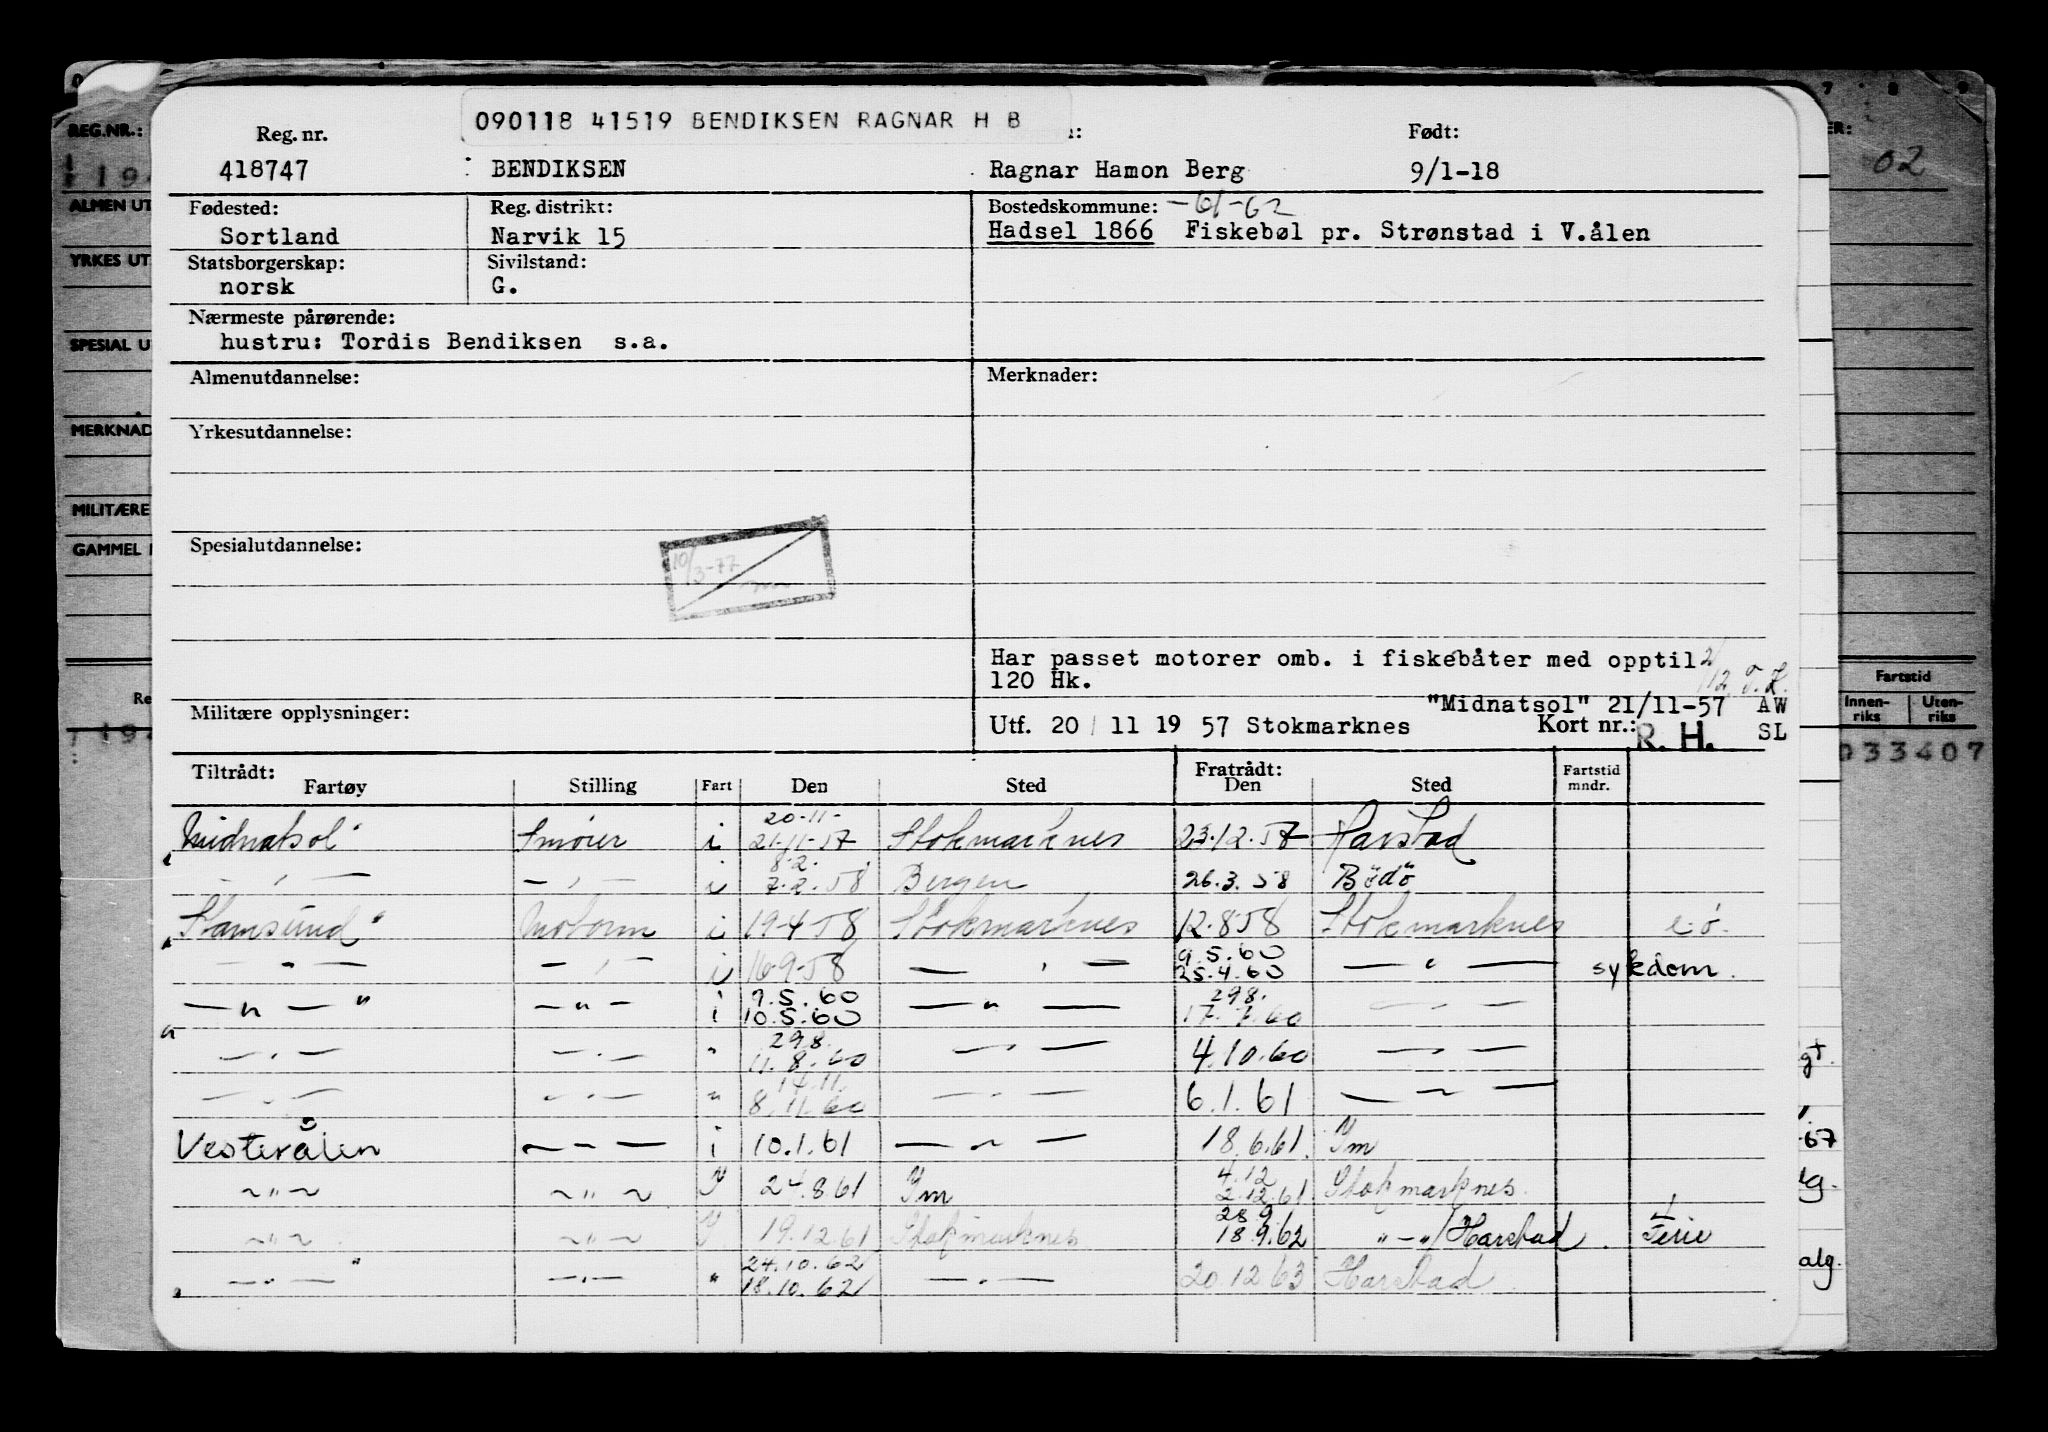 090118 41519 BENDIKSEN RAGNAR H B
Reg. nr. Født:
418747 BENDIKSEN Ragnar Hamon Berg 9/1-18
Fødested: Reg. distrikt: Bostedskommune: -61-62
Sortland Narvik 15 Hadsel 1866 Fiskebøl pr. Strønstad i V.ålen
Statsborgerskap: Sivilstand:
norsk G.
Nærmeste pårørende:
hustru: Tordis Bendiksen s.a.
Almenutdannelse: Merknader:
Yrkesutdannelse:
Spesialutdannelse:
10/3-77
Har passet motorer omb. i fiskebåter med opptil 2/12
120 Hk.
"Midnatsol" 21/11-57 AW
Militære opplysninger: Utf. 20/11 19 57 Stokmarknes Kort nr.: R. H. SL
Tiltrådt: Fratrådt: Fartstid
Fartøy Stilling Fart Den Sted Den Sted mndr.
20-11-
"Midnatsol" Smører i 21-11-57 Stokmarknes 23.12.57 Harstad
8.2.
— " — — " — i 7.2.58 Bergen 26.3.58 Bödö
"Stamsund" Motorm i 19-4-58 Stokmarknes 12.8.58 Stokmarknes e.ö.
9.5.60
— " — — " — i 16-9-58 — " — 25.4.60 — " — sykdom.
9.5.60 29.8.
— " — " — " — i 10.5.60 — " — 17.7.60 — " —
29.8.
— " — — " — " 11.8.60 — " — 4.10.60 — " —
14.11.
— " — — " — " 8.11.60 — " — 6.1.61 — " —
Vesterålen — " — i 10.1.61 — " — 18.6.61 Ym
4.12
— " — — " — Y 24.8.61 Ym 2.12.61 Stokmarknes.
28.9.
— " — — " — Y 19.12.61 Stokmarknes 18.9.62 " — " / Harstad Ferie
24.10.62
— " — " — " — " 18.10.62 — " — 20.12.63 Harstad
REG.NR.:
ALMEN UT
YRKES UT
SPESIAL U
MERKNAD
MILITÆRE
GAMMEL
Re
7 8 9
02
Fartstid
Innen-riks Uten-riks
033407
gt.
-67
alg.